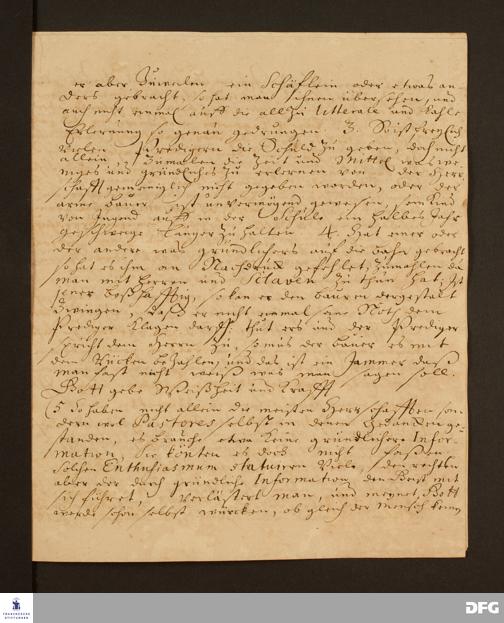 er aber Zuweilen ein Schäflein oder etwas an
ders gebracht, so hat man ihnen übersehen, und
auch nicht einmal auff die allzu litterale und kahle
Erlernung so genau gedrungen. 3. ist freylich
vielen Predigern die Schuld zu geben, doch nicht
allein, Zumalen die Zeit und Mittel was we
niges und gründliches zu erlernen von der Herr
schafft gemeiniglich nicht gegeben worden, oder der
arme bauer ist unvermögend gewesen, ein Kind
von Jugend auff in der Schule ein halbes Jahr
geschweige länger zu halten. 4. Hat einer oder
der andere was gründlichers auf die bahn gebracht
so hat es ihm an Nachdruck gefehlet, zumahlen da
man mit Herren und Sclaven zu thun hat; Ist
jener boßhafftig, so kan er den bauren dergestalt
zwingen, daß er nicht einmal seine Noth dem
Prediger klagen darff, thut ers und der Prediger
spricht dem Herrn zu, so muß der bauer es mit
dem Rücken bezahlen, und das ist ein Jammer daß
man fast nicht weiß was man sagen soll.
Gott gebe Weißheit und Krafft
(5 So haben nicht allein die meisten Herrschafften son
dern wol Pastores selbst in denen Gedancken ge-
standen, es brauche etwa keine gründlichere Infor-
mation, Sie könten es doch nicht faßen
solchen Enthusiasmum statuiren viele, den rechten
aber der durch gründliche Information den Geist mit
sich führet, verlästert man, und meynet, Gott
werde schon selbst würcken, ob gleich der Mensch keine
FRANCKESCHE STIFTUNGEN
DFG